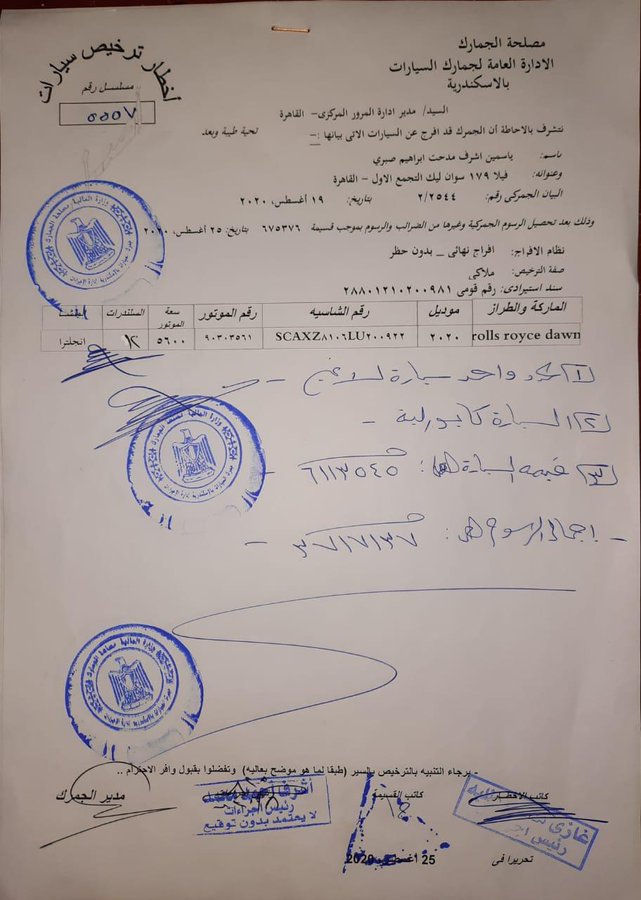 مصلحة الجمارك
الادارة العامة لجمارك السيارات
بالاسكندرية
أخطار ترخيص سيارات
مسلسل رقم
٥٥٥٧
السيد/ مدير ادارة المرور المركزى - القاهرة
تحية طيبة وبعد
نتشرف بالاحاطة أن الجمرك قد افرج عن السيارات الاتى بيانها :-
باسم: ياسمين اشرف مدحت ابراهيم صبري
وعنوانه: فيلا ١٧٩ سوان ليك التجمع الاول - القاهرة
البيان الجمركى رقم: ٢/٢٥٤٤ بتاريخ: ١٩ أغسطس، ٢٠٢٠
وذلك بعد تحصيل الرسوم الجمركية وغيرها من الضرائب والرسوم بموجب قسيمة ٦٧٥٣٧٦ بتاريخ: ٢٥ أغسطس، ٢٠٢٠
نظام الافراج: افراج نهائى _ بدون حظر
صفة الترخيص: ملاكى
سند استيرادى: رقم قومى ٢٨٨٠١٢١٠٢٠٠٩٨١
الماركة والطراز موديل رقم الشاسيه رقم الموتور سعة الموتور السلندرات المنشأ
rolls royce dawn ٢٠٢٠ SCAXZ٨١٠٦LU٢٠٠٩٢٢ ٩٠٣٠٣٥٦١ ٥٦٠٠ ١٢ انجلترا
١) عدد واحد سيارة لا غير -
٢) السيارة كابورليه -
٣) قيمه السيارة : ٦١١٣٥٤٥ -
- اجمالى الرسوم : ٣٧١٧١٣٧ -
برجاء التنبيه بالترخيص بالسير (طبقا لما هو موضح بعاليه) وتفضلوا بقبول وافر الاحترام ..
كاتب الاخطار كاتب القسيمة مدير الجمرك
أشرف
رئيس اجراءات
لا يعتمد بدون توقيع
غازى
رئيس
تحريرا فى 25 أغسطس 2020